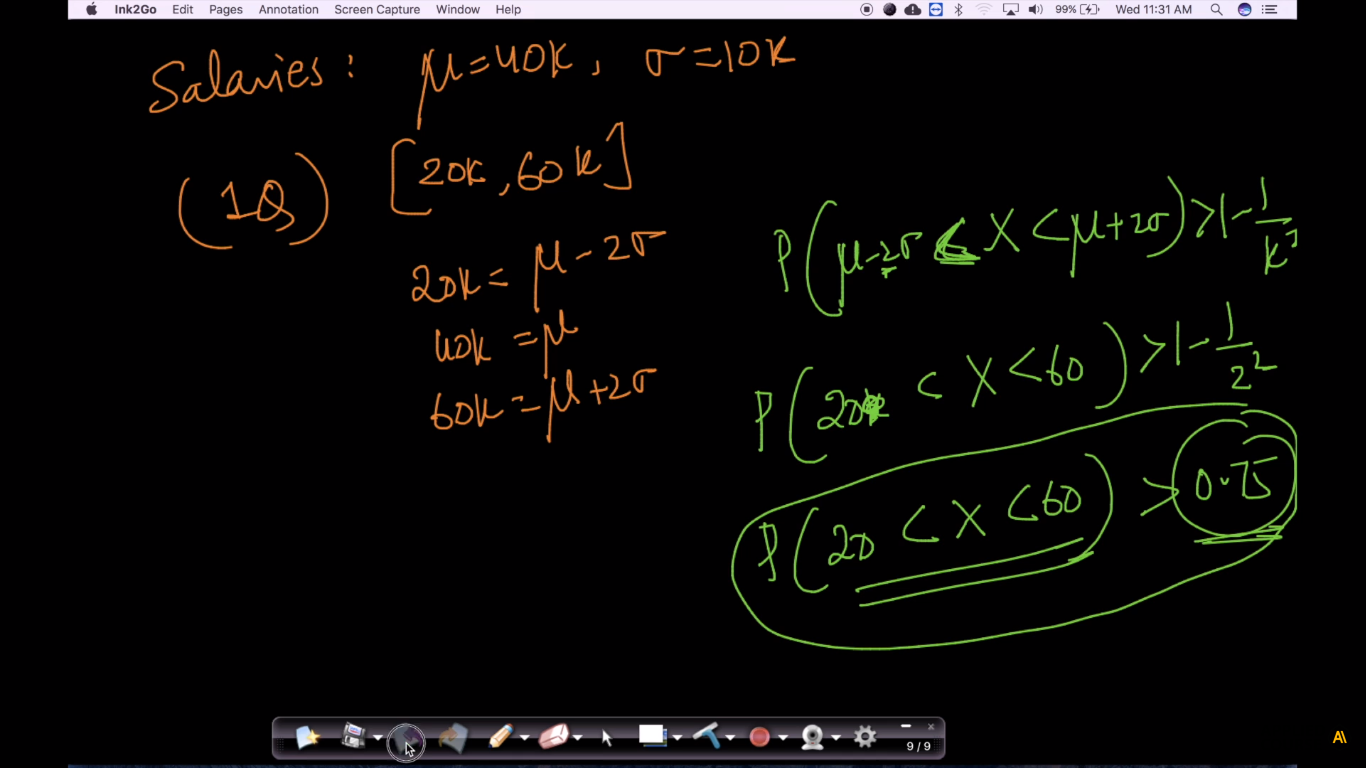 Ink2Go Edit Pages Annotation Screen Capture Window Help 99% Wed 11:31 AM
Salaries: μ=40k, σ=10k
(1Q) [20k, 60k]
20k = μ-2σ
40k = μ
60k = μ+2σ
P(μ-2σ < X < μ+2σ) > 1 - 1/k²
P(20k < X < 60) > 1 - 1/2²
P(20 < X < 60) > 0.75
9 / 9